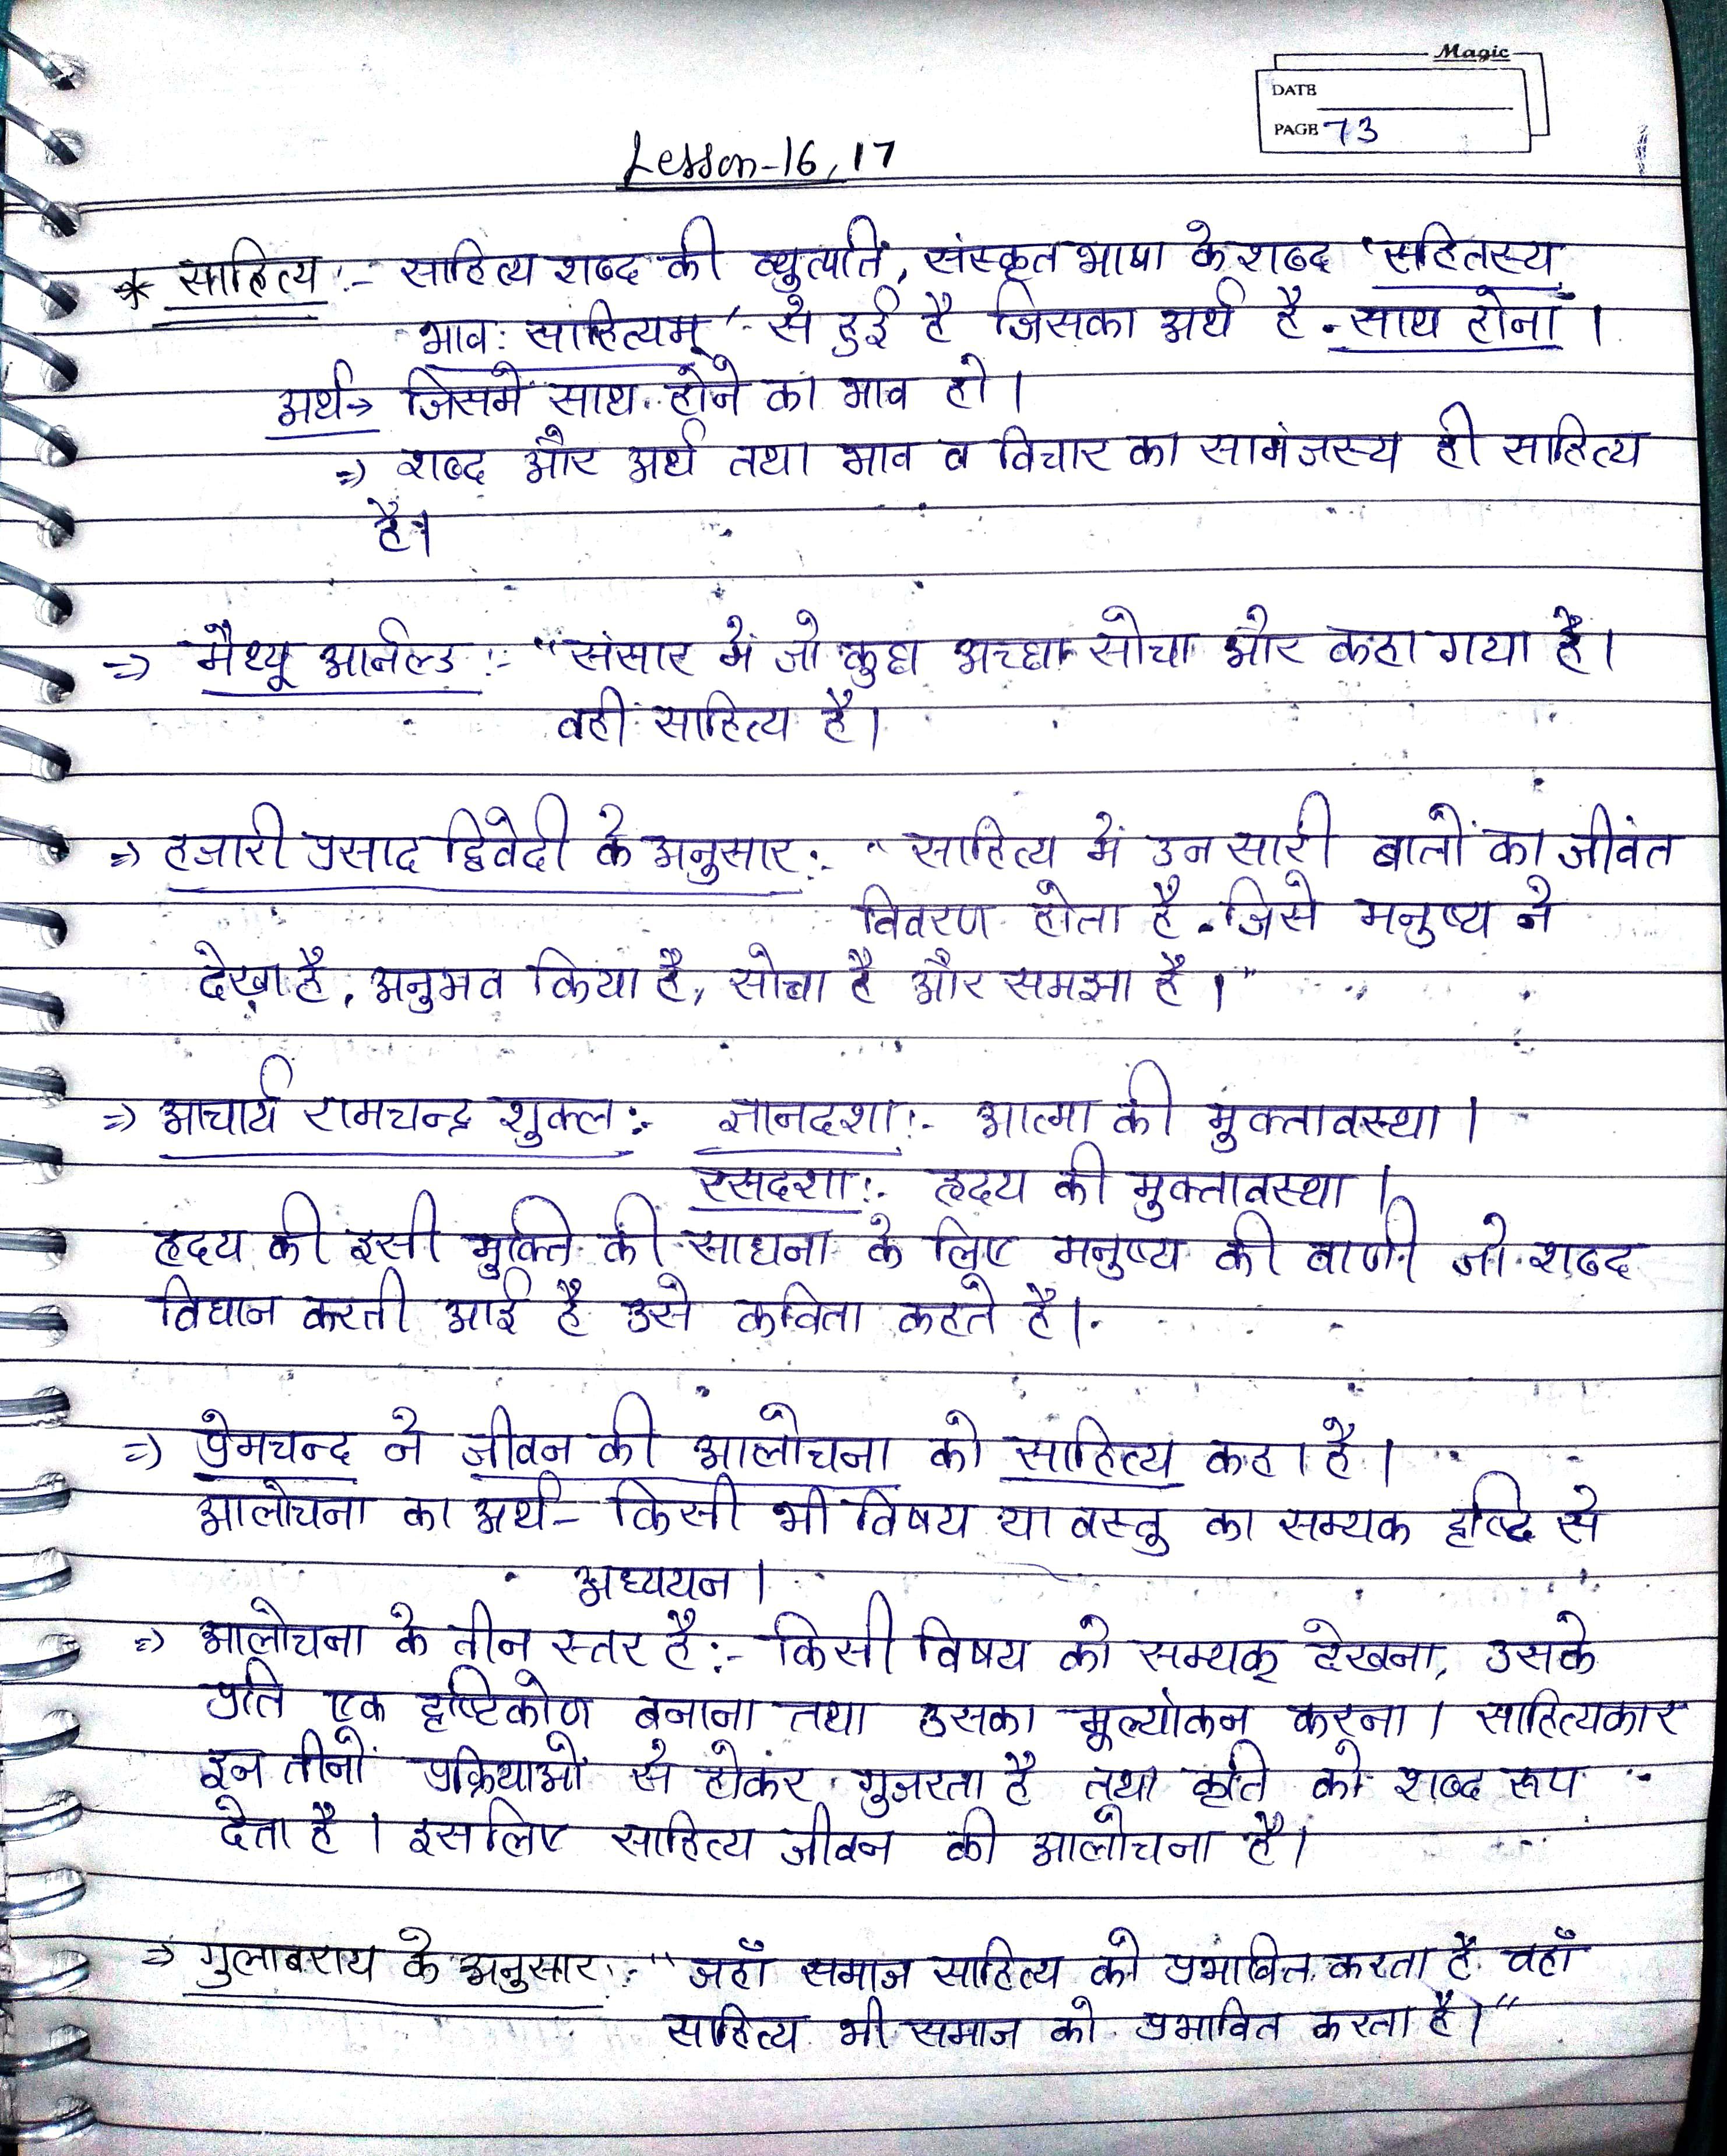 Magic
DATE
PAGE 73
Lesson-16, 17
* साहित्य :- साहित्य शब्द की व्युत्पति, संस्कृत भाषा के शब्द 'सहितस्य
भाव: साहित्यम्' से हुई है जिसका अर्थ है - साथ होना ।
अर्थ → जिसमें साथ होने का भाव हो ।
⇒ शब्द और अर्थ तथा भाव व विचार का सामंजस्य ही साहित्य
है।
⇒ मैथ्यू आर्नल्ड :- "संसार में जो कुछ अच्छा सोचा और कहा गया है।
वही साहित्य है।
⇒ हजारी प्रसाद द्विवेदी के अनुसार :- "साहित्य में उन सारी बातों का जीवंत
विवरण होता है - जिसे मनुष्य ने
देखा है, अनुभव किया है, सोचा है और समझा है ।"
⇒ आचार्य रामचन्द्र शुक्ल :- ज्ञानदशा :- आत्मा की मुक्तावस्था ।
रसदशा :- हृदय की मुक्तावस्था ।
हृदय की इसी मुक्ति की साधना के लिए मनुष्य की वाणी जो शब्द
विधान करती आई है उसे कविता कहते है।
⇒ प्रेमचन्द ने जीवन की आलोचना को साहित्य कहा है ।
आलोचना का अर्थ - किसी भी विषय या वस्तु का सम्यक दृष्टि से
अध्ययन ।
⇒ आलोचना के तीन स्तर है :- किसी विषय को सम्यक् देखना, उसके
प्रति एक दृष्टिकोण बनाना तथा उसका मूल्यांकन करना । साहित्यकार
इन तीनों प्रक्रियाओं से होकर गुजरता है तथा कृति को शब्द रूप
देता है । इसलिए साहित्य जीवन की आलोचना है।
⇒ गुलाबराय के अनुसार :- "जहाँ समाज साहित्य को प्रभावित करता है वहाँ
साहित्य भी समाज को प्रभावित करता है।"